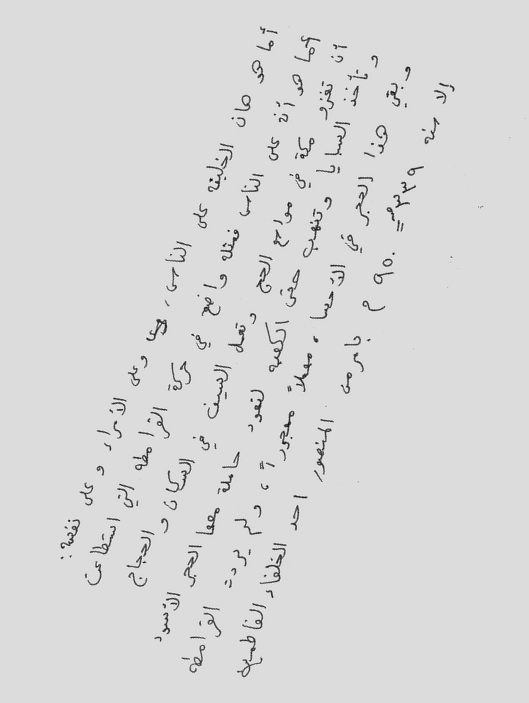 أما هو هان الخليفة على الناس، وعلى الأمراء وعلى نفسه:
أما هو أنه على الناس فمثله واضح في حركة القرامطة التي استطاعت
أن تغزو مكة في مواسم الحج وتعمل السيف في السكان والحجاج
وتأخذ السبايا وتنهب حتى الكعبة لتعود حاملة معها الحجر الأسود
وبقي هذا الحجر في الأحساء معطلاً مهجوراً، ولم يردت القرامطة
إلا سنة ٣٣٩هـ = ٩٥٠ م بأمر من المنصور احد الخلفاء الفاطميين